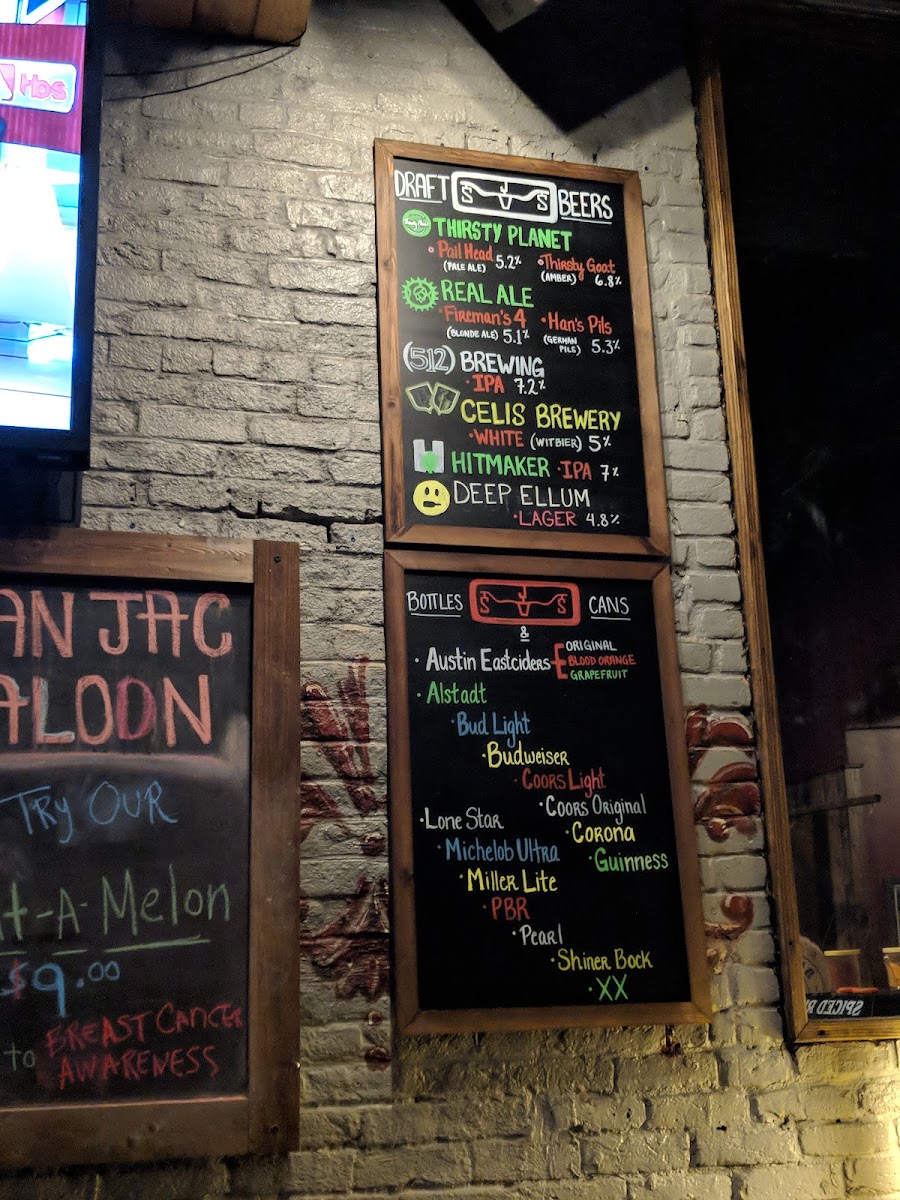 tbs
DRAFT SJS BEERS
THIRSTY PLANET
• Pail Head 5.2% • Thirsty Goat
(PALE ALE) (AMBER) 6.8%
REAL ALE
• Fireman's 4 • Han's Pils
(BLONDE ALE) 5.1% (GERMAN PILS) 5.3%
(512) BREWING
• IPA 7.2%
CELIS BREWERY
• WHITE (WITBIER) 5%
HITMAKER • IPA 7%
DEEP ELLUM
• LAGER 4.8%
BOTTLES SJS CANS
&
• Austin Eastciders ORIGINAL
BLOOD ORANGE
GRAPEFRUIT
• Alstadt
• Bud Light
• Budweiser
• Coors Light
• Coors Original
• Lone Star
• Corona
• Michelob Ultra
• Guinness
• Miller Lite
• PBR
• Pearl
• Shiner Bock
• XX
AN JAC
ALOON
TRY OUR
t-A-Melon
$9.00
to BREAST CANCER
AWARENESS
SPICED